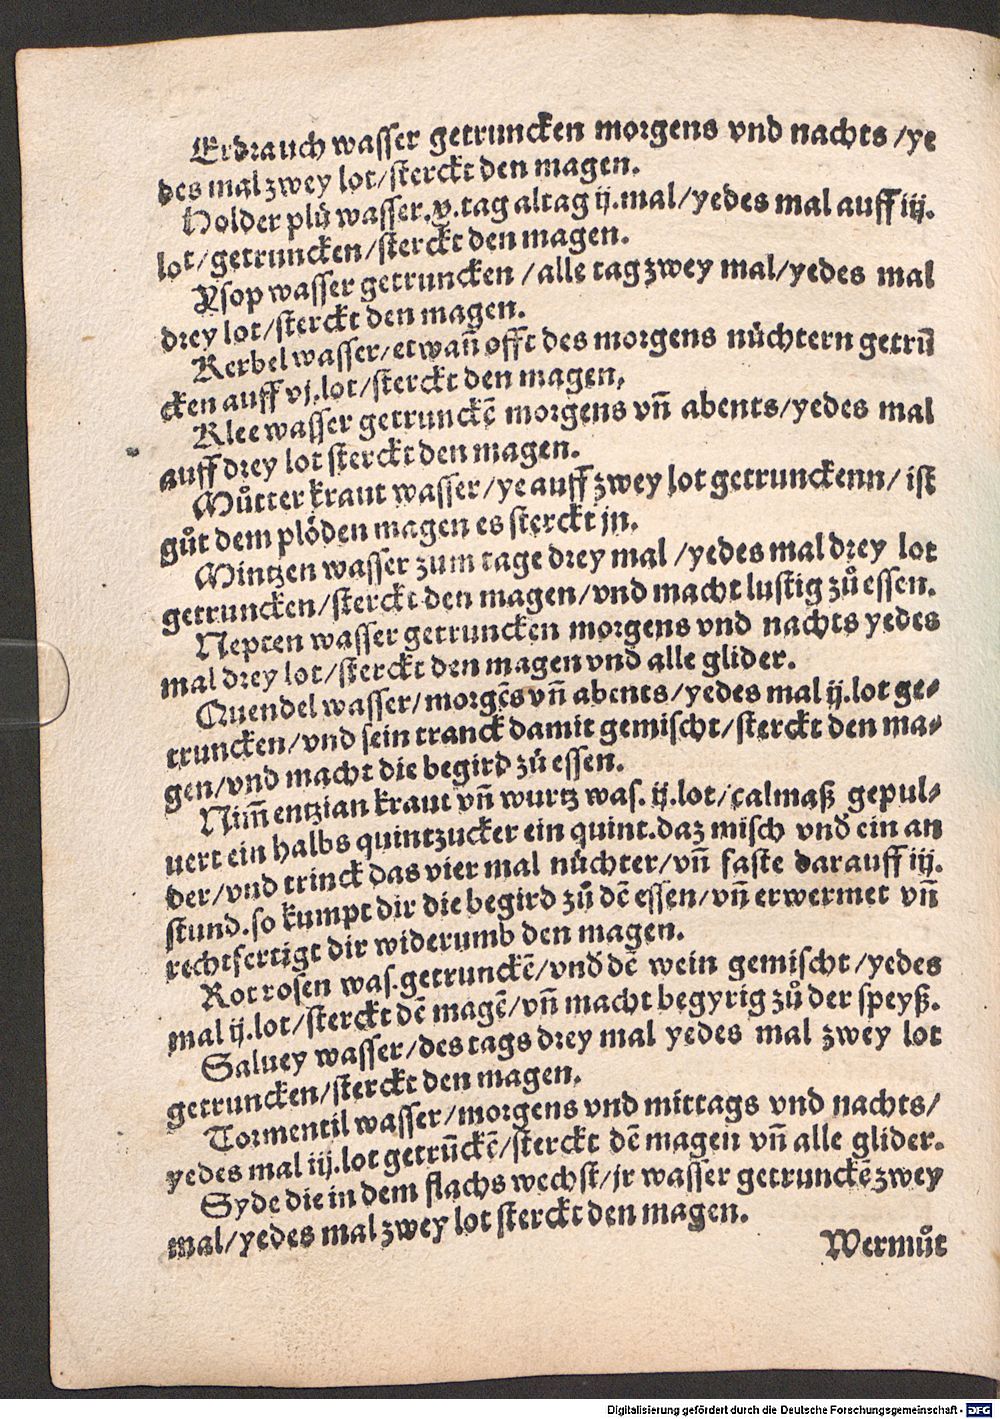 Erdrauch wasser getruncken morgens vnd nachts /ye
des mal zwey lot/sterckt den magen.
Holder plů wasser.v.tag altag ij.mal/yedes mal auff iij.
lot/getruncken/sterckt den magen.
Ysop wasser getruncken /alle tag zwey mal/yedes mal
drey lot/sterckt den magen.
Kerbel wasser/etwañ offt des morgens nüchtern getrũ
cken auff vj.lot/sterckt den magen,
Klee wasser getrunckẽ morgens vñ abents/yedes mal
auff drey lot sterckt den magen.
Můtter kraut wasser/ye auff zwey lot getrunckenn/ ist
gůt dem plöden magen es sterckt jn.
Mintzen wasser zum tage drey mal /yedes mal drey lot
getruncken/sterckt den magen/vnd macht lustig zů essen.
Nepten wasser getruncken morgens vnd nachts yedes
mal drey lot/sterckt den magen vnd alle glider.
Quendel wasser/morgẽs vñ abents/yedes mal ij.lot ge⸗
truncken/vnd sein tranck damit gemischt/sterckt den ma⸗
gen/vnd macht die begird zů essen.
Nim̃ entzian kraut vñ wurtz was. ij.lot/calmaß gepul⸗
uert ein halbs quintzucker ein quint.daz misch vnd ein an
der/vnd trinck das vier mal nüchter/vñ faste darauff iij.
stund.so kumpt dir die begird zů dẽ essen/vñ erwermet vñ
rechtfertigt dir widerumb den magen.
Rot rosen was.getrunckẽ/vnd dẽ wein gemischt/yedes
mal ij.lot/sterckt dẽ magẽ/vñ macht begyrig zů der speyß.
Saluey wasser/des tags drey mal yedes mal zwey lot
getruncken/sterckt den magen.
Tormentil wasser/morgens vnd mittags vnd nachts/
yedes mal iij.lot getrũckẽ/sterckt dẽ magen vñ alle glider.
Syde die in dem flachs wechst/jr wasser getrunckẽ zwey
mal/yedes mal zwey lot sterckt den magen.
Wermůt
Digitalisierung gefördert durch die Deutsche Forschungsgemeinschaft - DFG